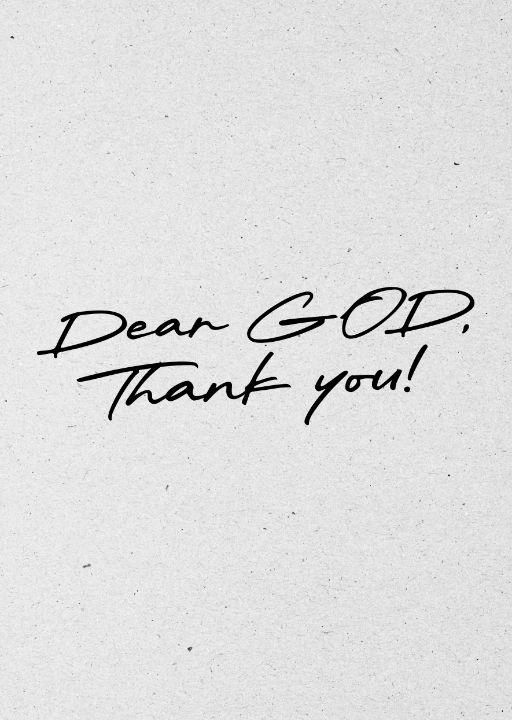 Dear GOD,
Thank you!